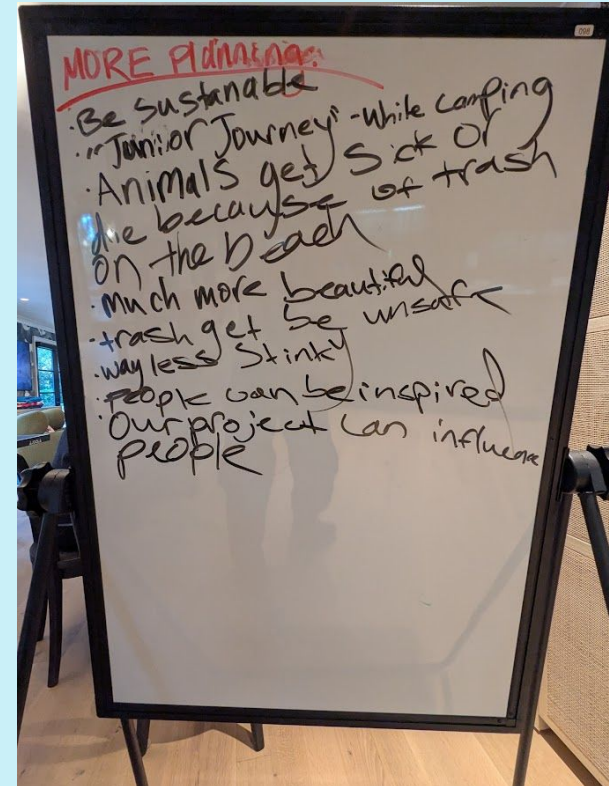 098
MORE Planning:
· Be sustanable
· "Junior Journey" - While camping
· Animals get sick or
die because of trash
on the beach
· much more beautiful
· trash get be unsafe
· way less stinky
· People can be inspired
· Our project can influence
people